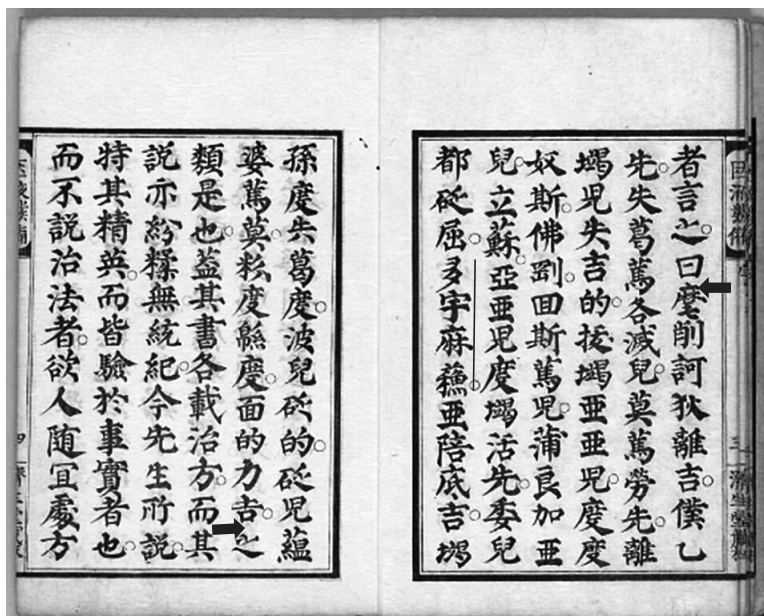 者言之曰削訶狄離吉僕乙
先失葛篤各減兒莫篤勞先離
竭児失吉的接竭亞亞児度度
奴斯佛回斯篤児蒲良加亜
兒立蘇亞亜児度竭活先委兒
都砭屈多宇麻蘓亜陪底吉竭
孫度失葛度波兒砭的砭児蘊
婆篤莫度度面的力吉之
類是也葢其書各載治方而其
説亦紛糅無統紀今先生所説
特其精英而皆驗於事實者也
而不説治法者欲人随宜處方